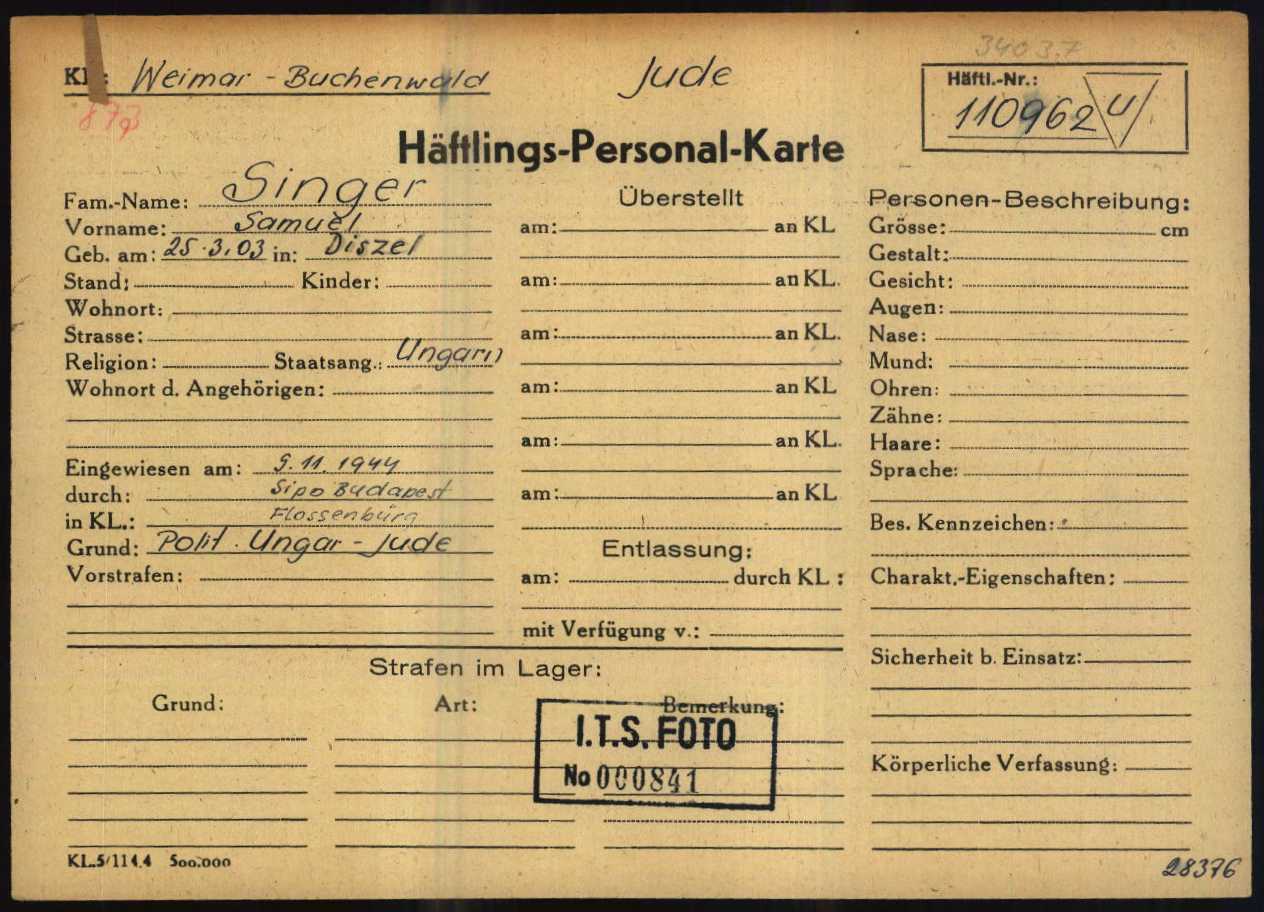 34037
KL: Weimar - Buchenwald
Jude
Häftl.-Nr.:
110962 U
Häftlings-Personal-Karte
Fam.-Name: Singer
Vorname: Samuel
Geb. am: 25.3.03 in: Diszel
Stand: Kinder:
Wohnort:
Strasse:
Religion: Staatsang.: Ungarn
Wohnort d. Angehörigen:
Eingewiesen am: 9.11.1944
durch: Sipo Budapest
in KL.: Flossenbürg
Grund: Polit. Ungar - Jude
Vorstrafen:
Überstellt
am: an KL
am: an KL.
am: an KL.
am: an KL
am: an KL.
am: an KL
Entlassung:
am: durch KL :
mit Verfügung v.:
Personen-Beschreibung:
Grösse: cm
Gestalt:
Gesicht:
Augen:
Nase:
Mund:
Ohren:
Zähne:
Haare:
Sprache:
Bes. Kennzeichen:
Charakt.-Eigenschaften:
Sicherheit b. Einsatz:
Körperliche Verfassung:
Strafen im Lager:
Grund: Art: Bemerkung:
I.T.S. FOTO
No 000841
KL.5/11 4.4 500.000
28376